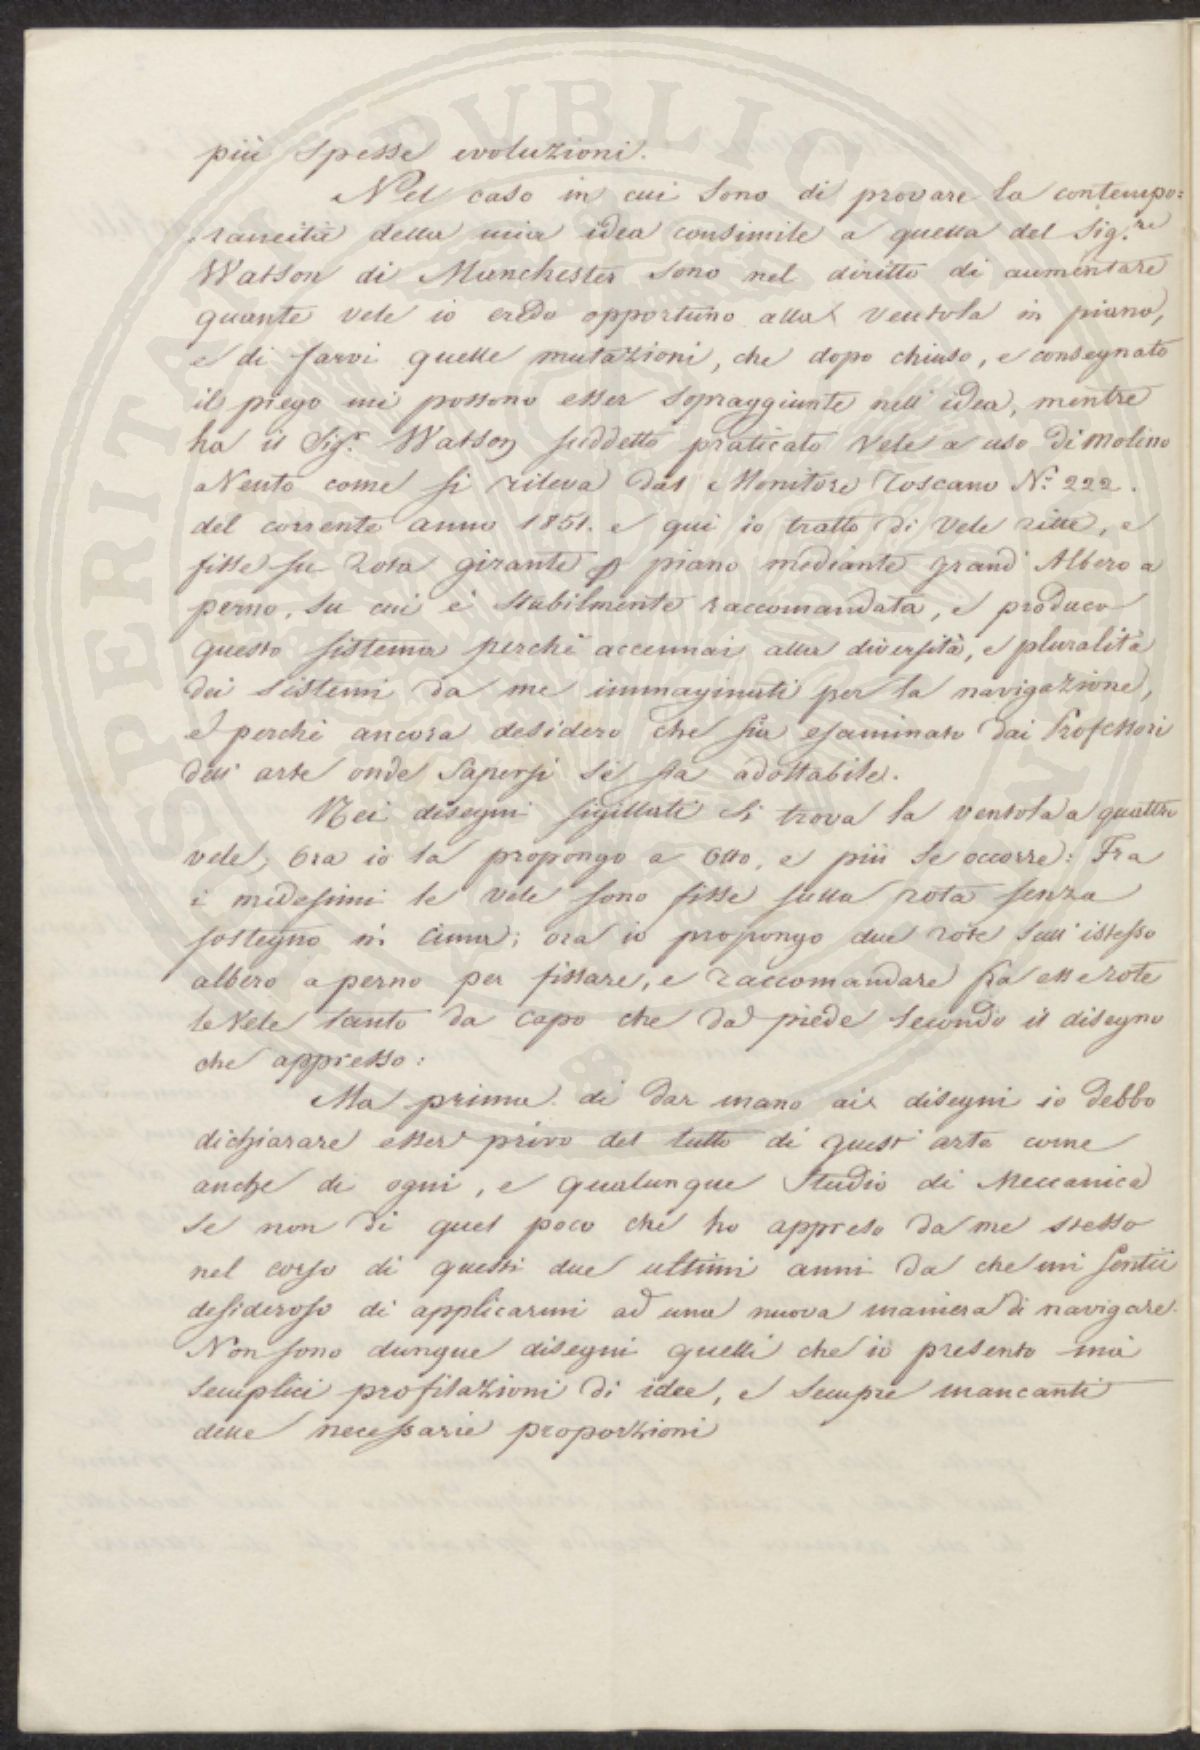 più spesse evoluzioni.
Nel caso in cui sono di provare la contempo=
raneità della mia idea consimile a quella del Sig.re
Watson di Manchester sono nel diritto di aumentare
quante vele io credo opportuno alla ventola in piano,
e di farvi quelle mutazioni, che dopo chiuso, e consegnato
il piego mi possono esser sopraggiunte nell'idea, mentre
ha il Sig.r Watson suddetto praticato Vele a uso di Molino
a Vento come si rileva dal Monitore Toscano N.o 222.
del corrente anno 1851. e qui io tratto di Vele ritte, e
fisse su Rota girante piano mediante grand'Albero a
perno, su cui è stabilmente raccomandata, e produco
questo sistema perchè accennai alla diversità, e pluralità
dei sistemi da me immaginati per la navigazione,
e perchè ancora desidero che sia esaminato dai Professori
dell'arte onde sapersi se sia adottabile.
Nei disegni sigillati si trova la ventola a quattro
vele, Ora io la propongo a Otto, e più se occorre: Fra
i medesimi le vele sono fisse sulla rota senza
sostegno in cima; ora io propongo due rote sull'istesso
albero a perno per fissare, e raccomandare fra esse rote
le Vele tanto da capo che da piede secondo il disegno
che appresso:
Ma prima di dar mano ai disegni io debbo
dichiarare esser privo del tutto di quest'arte come
anche di ogni, e qualunque Studio di Meccanica
se non di quel poco che ho appreso da me stesso
nel corso di questi due ultimi anni da che mi sentii
desideroso di applicarmi ad una nuova maniera di navigare.
Non sono dunque disegni quelli che io presento mà
semplici profilazioni di idee, e sempre mancanti
delle necessarie proporzioni